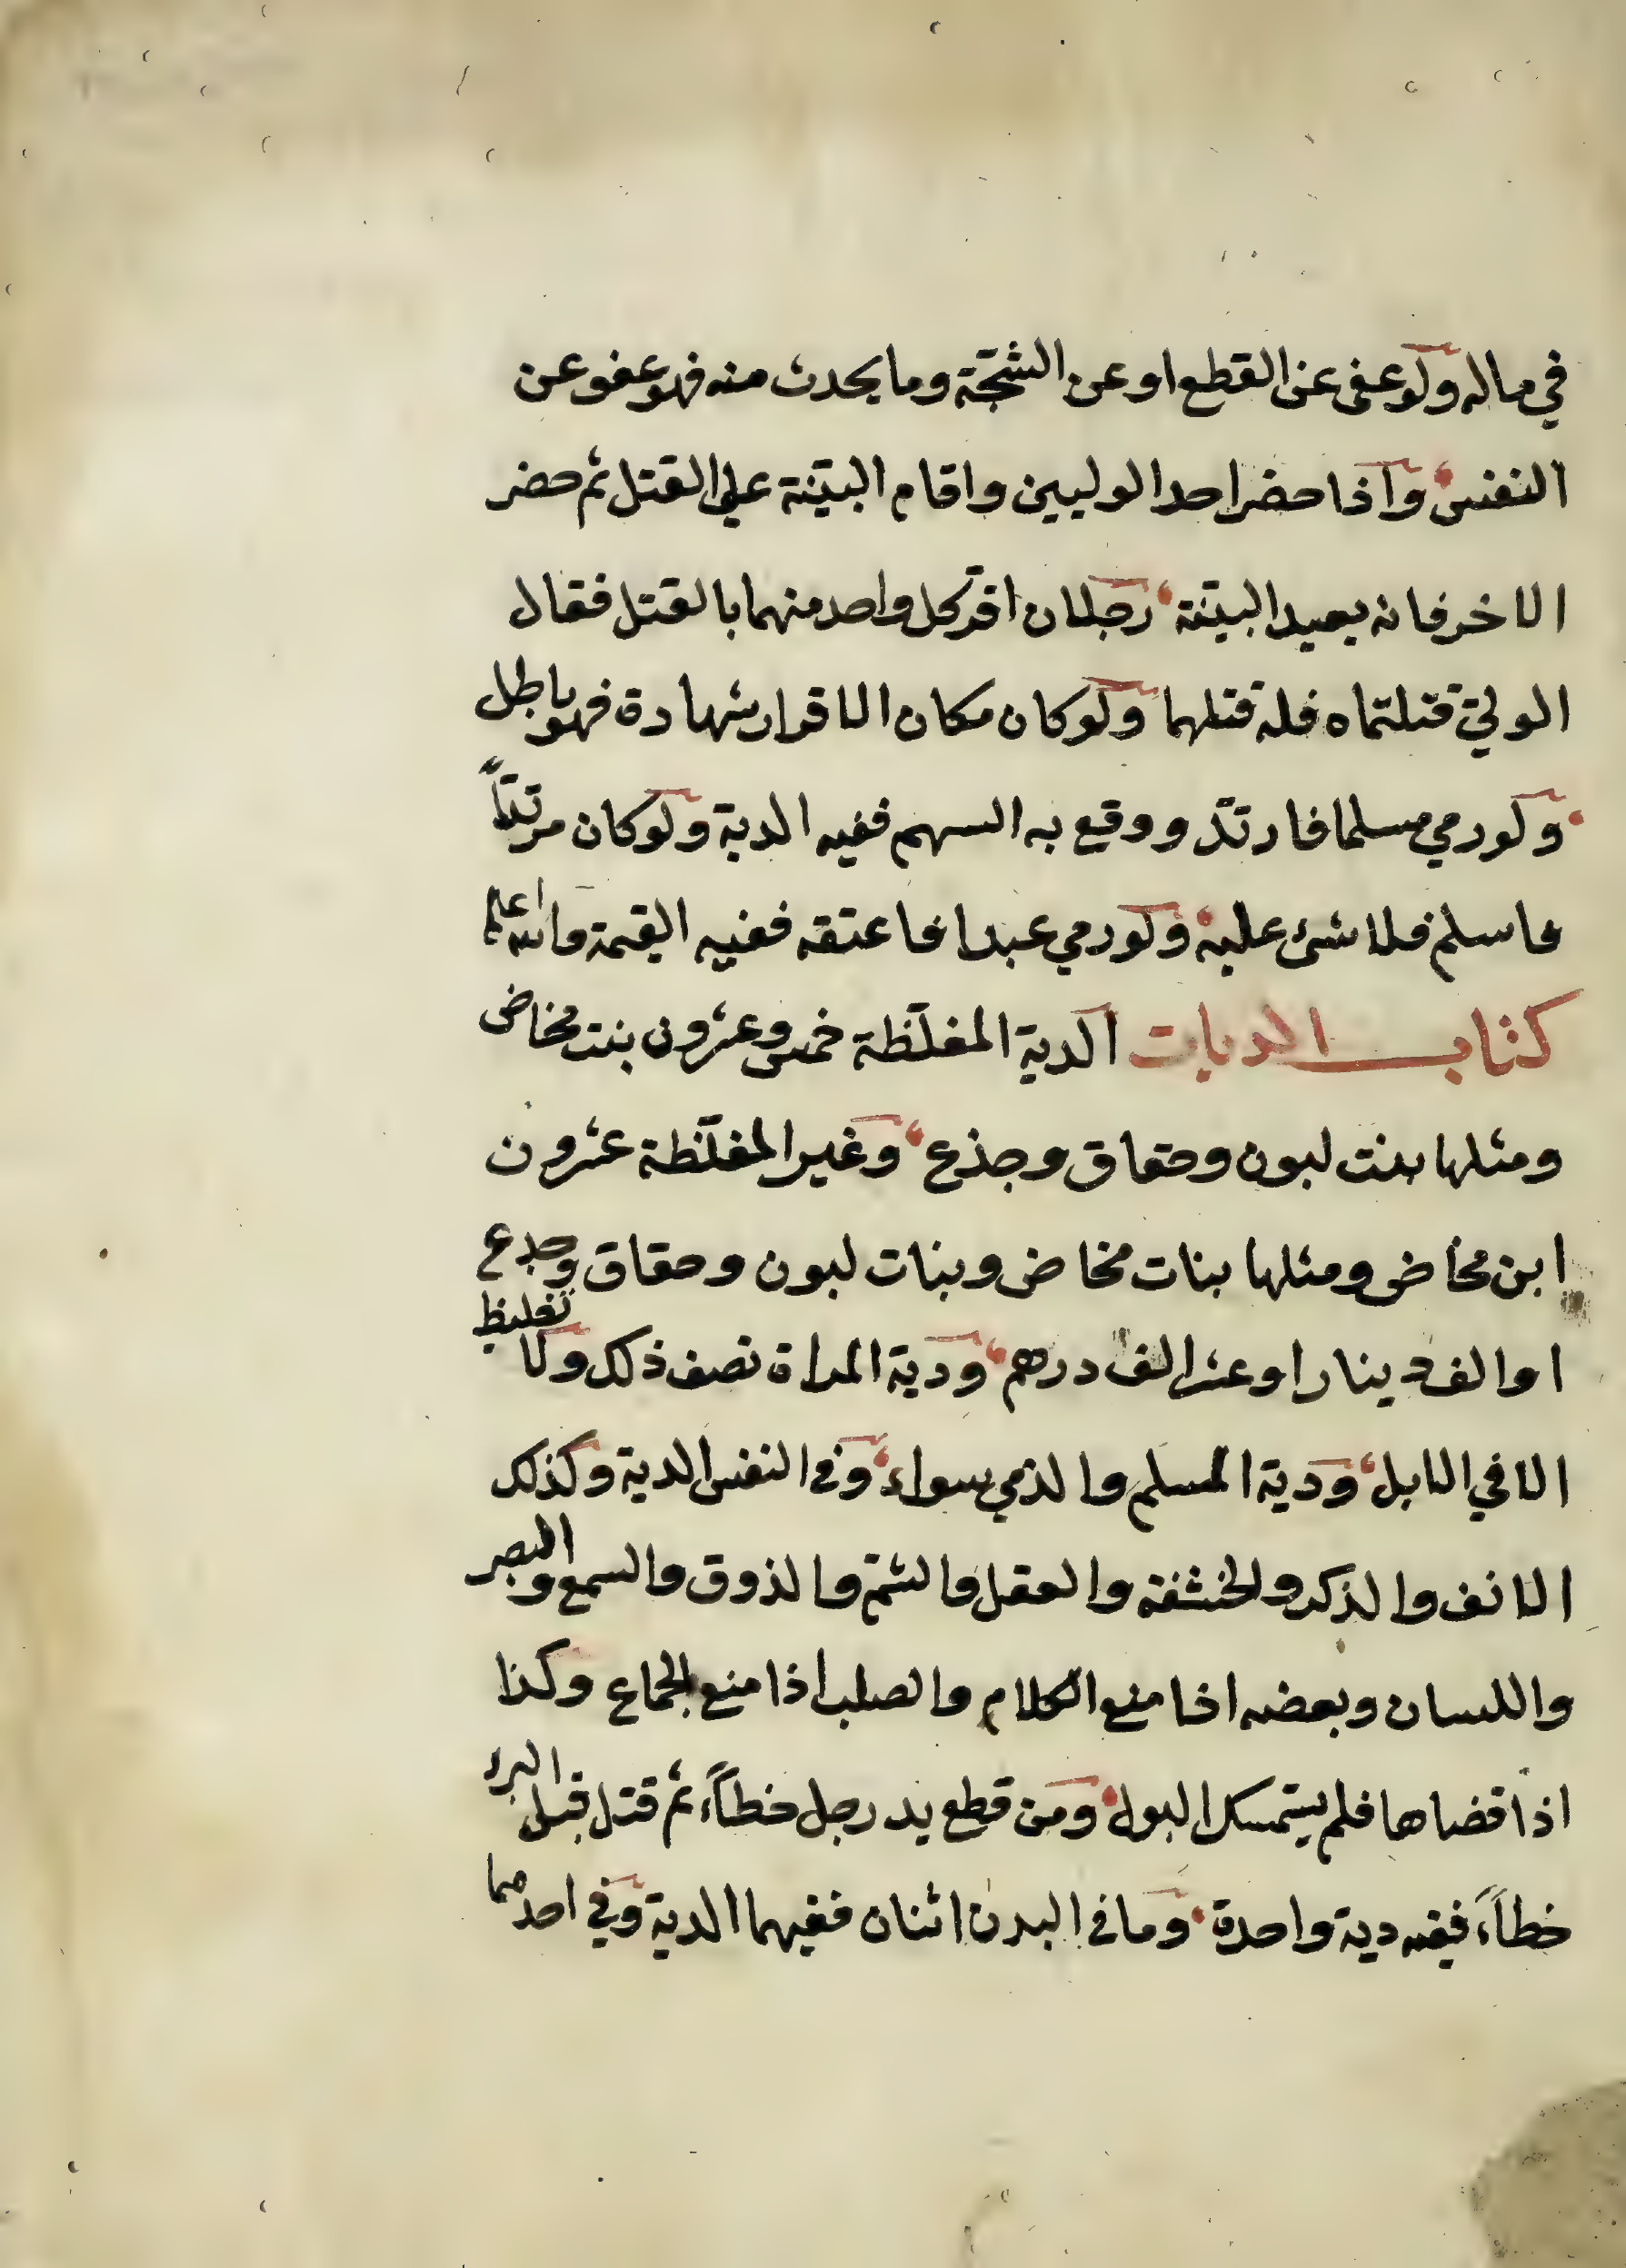 في ماله ولو عفى عن القطع او عن الشجّة وما يحدث منه فهو عفو عن
النفس واذا حضر احد الوليين واقام البيّنة علي القتل ثم حضر
الاخر فانه يعيد البيّنة رجلان اقرّ كل واحد منهما بالقتل فقال
الوليّ قتلتماه فله قتلهما ولو كان مكان الاقرار شهادة فهو باطل
ولو رمي مسلما فارتدّ ووقع به السهم ففيه الدية ولو كان مرتدّاً
فاسلم فلا شئ عليه ولو رمي عبدا فاعتقه ففيه القيمة والله اعلم
كتاب الديات الدية المغلّظة خمس وعشرون بنت مخاض
ومثلها بنت لبون وحقاق وجذع وغير المغلّظة عشرون
ابن مخاض ومثلها بنات مخاض وبنات لبون وحقاق وجذع
او الف دينار او عشر الف درهم ودية المراة نصف ذلك ولا تغليظ
الا في الابل ودية المسلم والذمي سواء وفي النفس الدية وكذلك
الانف والذكر والخشفة والعقل والشمّ والذوق والسمع والبصر
واللسان وبعضه اذا منع الكلام والصلب اذا منع الجماع وكذا
اذا قضاها فلم يستمسك البول ومن قطع يد رجل خطاًء ثم قتل قبل البرء
خطاًء ففيه دية واحدة وما في البدن اثنان ففيهما الدية وفي احدهما